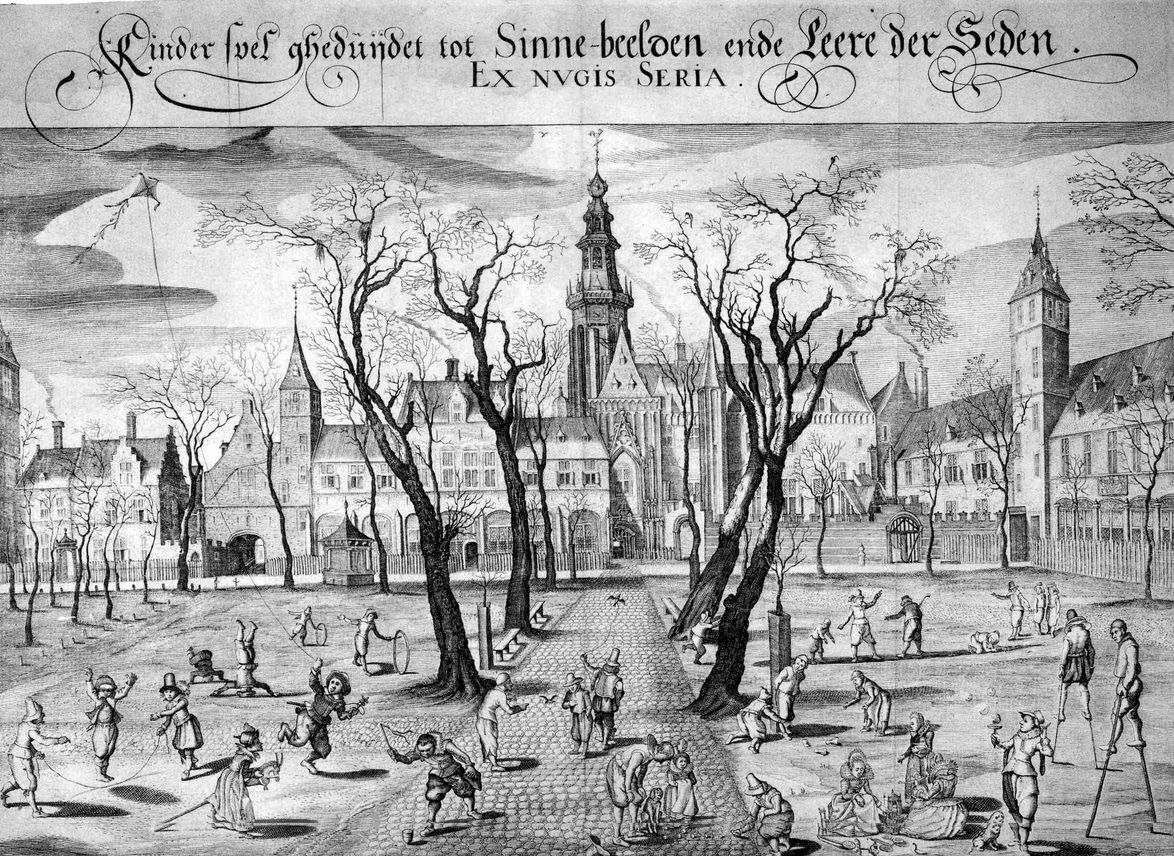 Kinder spel ghedüijdet tot Sinne-beelden ende Leere der Seden.
EX NVGIS SERIA.